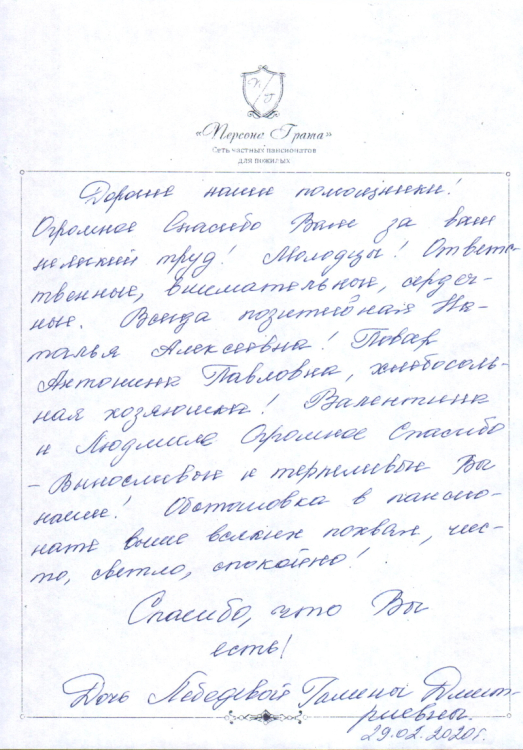 П/Г
«Персона Грата»
Сеть частных пансионатов
для пожилых
Дорогие наши помощники!
Огромное Спасибо Вам за ваш
нелегкий труд! Молодцы! Ответс-
твенные, внимательные, сердеч-
ные. Всегда позитивная На-
талья Алексеевна! Повар
Антонина Павловна, хлебосоль-
ная хозяюшка! Валентина
и Людмила Огромное Спасибо
- Выносливые и терпеливые Вы
наши! Обстановка в пансио-
нате выше всяких похвал, чис-
то, светло, спокойно!
Спасибо, что Вы
есть!
Дочь Лебедевой Галины Дмит-
риевны.
29.02.2020г.